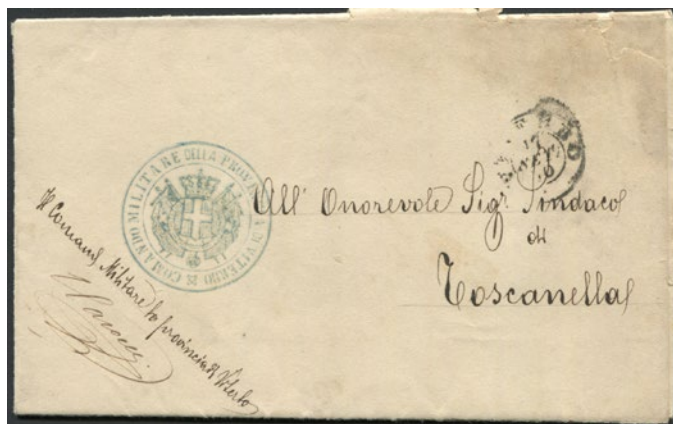 COMANDO MILITARE DELLA PROVINCIA DI VITERBO
All' Onorevole Sigr Sindaco
di
Toscanella
Il Comand Militare della provincia di Viterbo